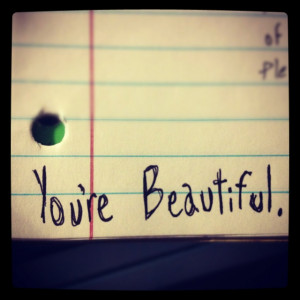 of
ple
You're Beautiful.